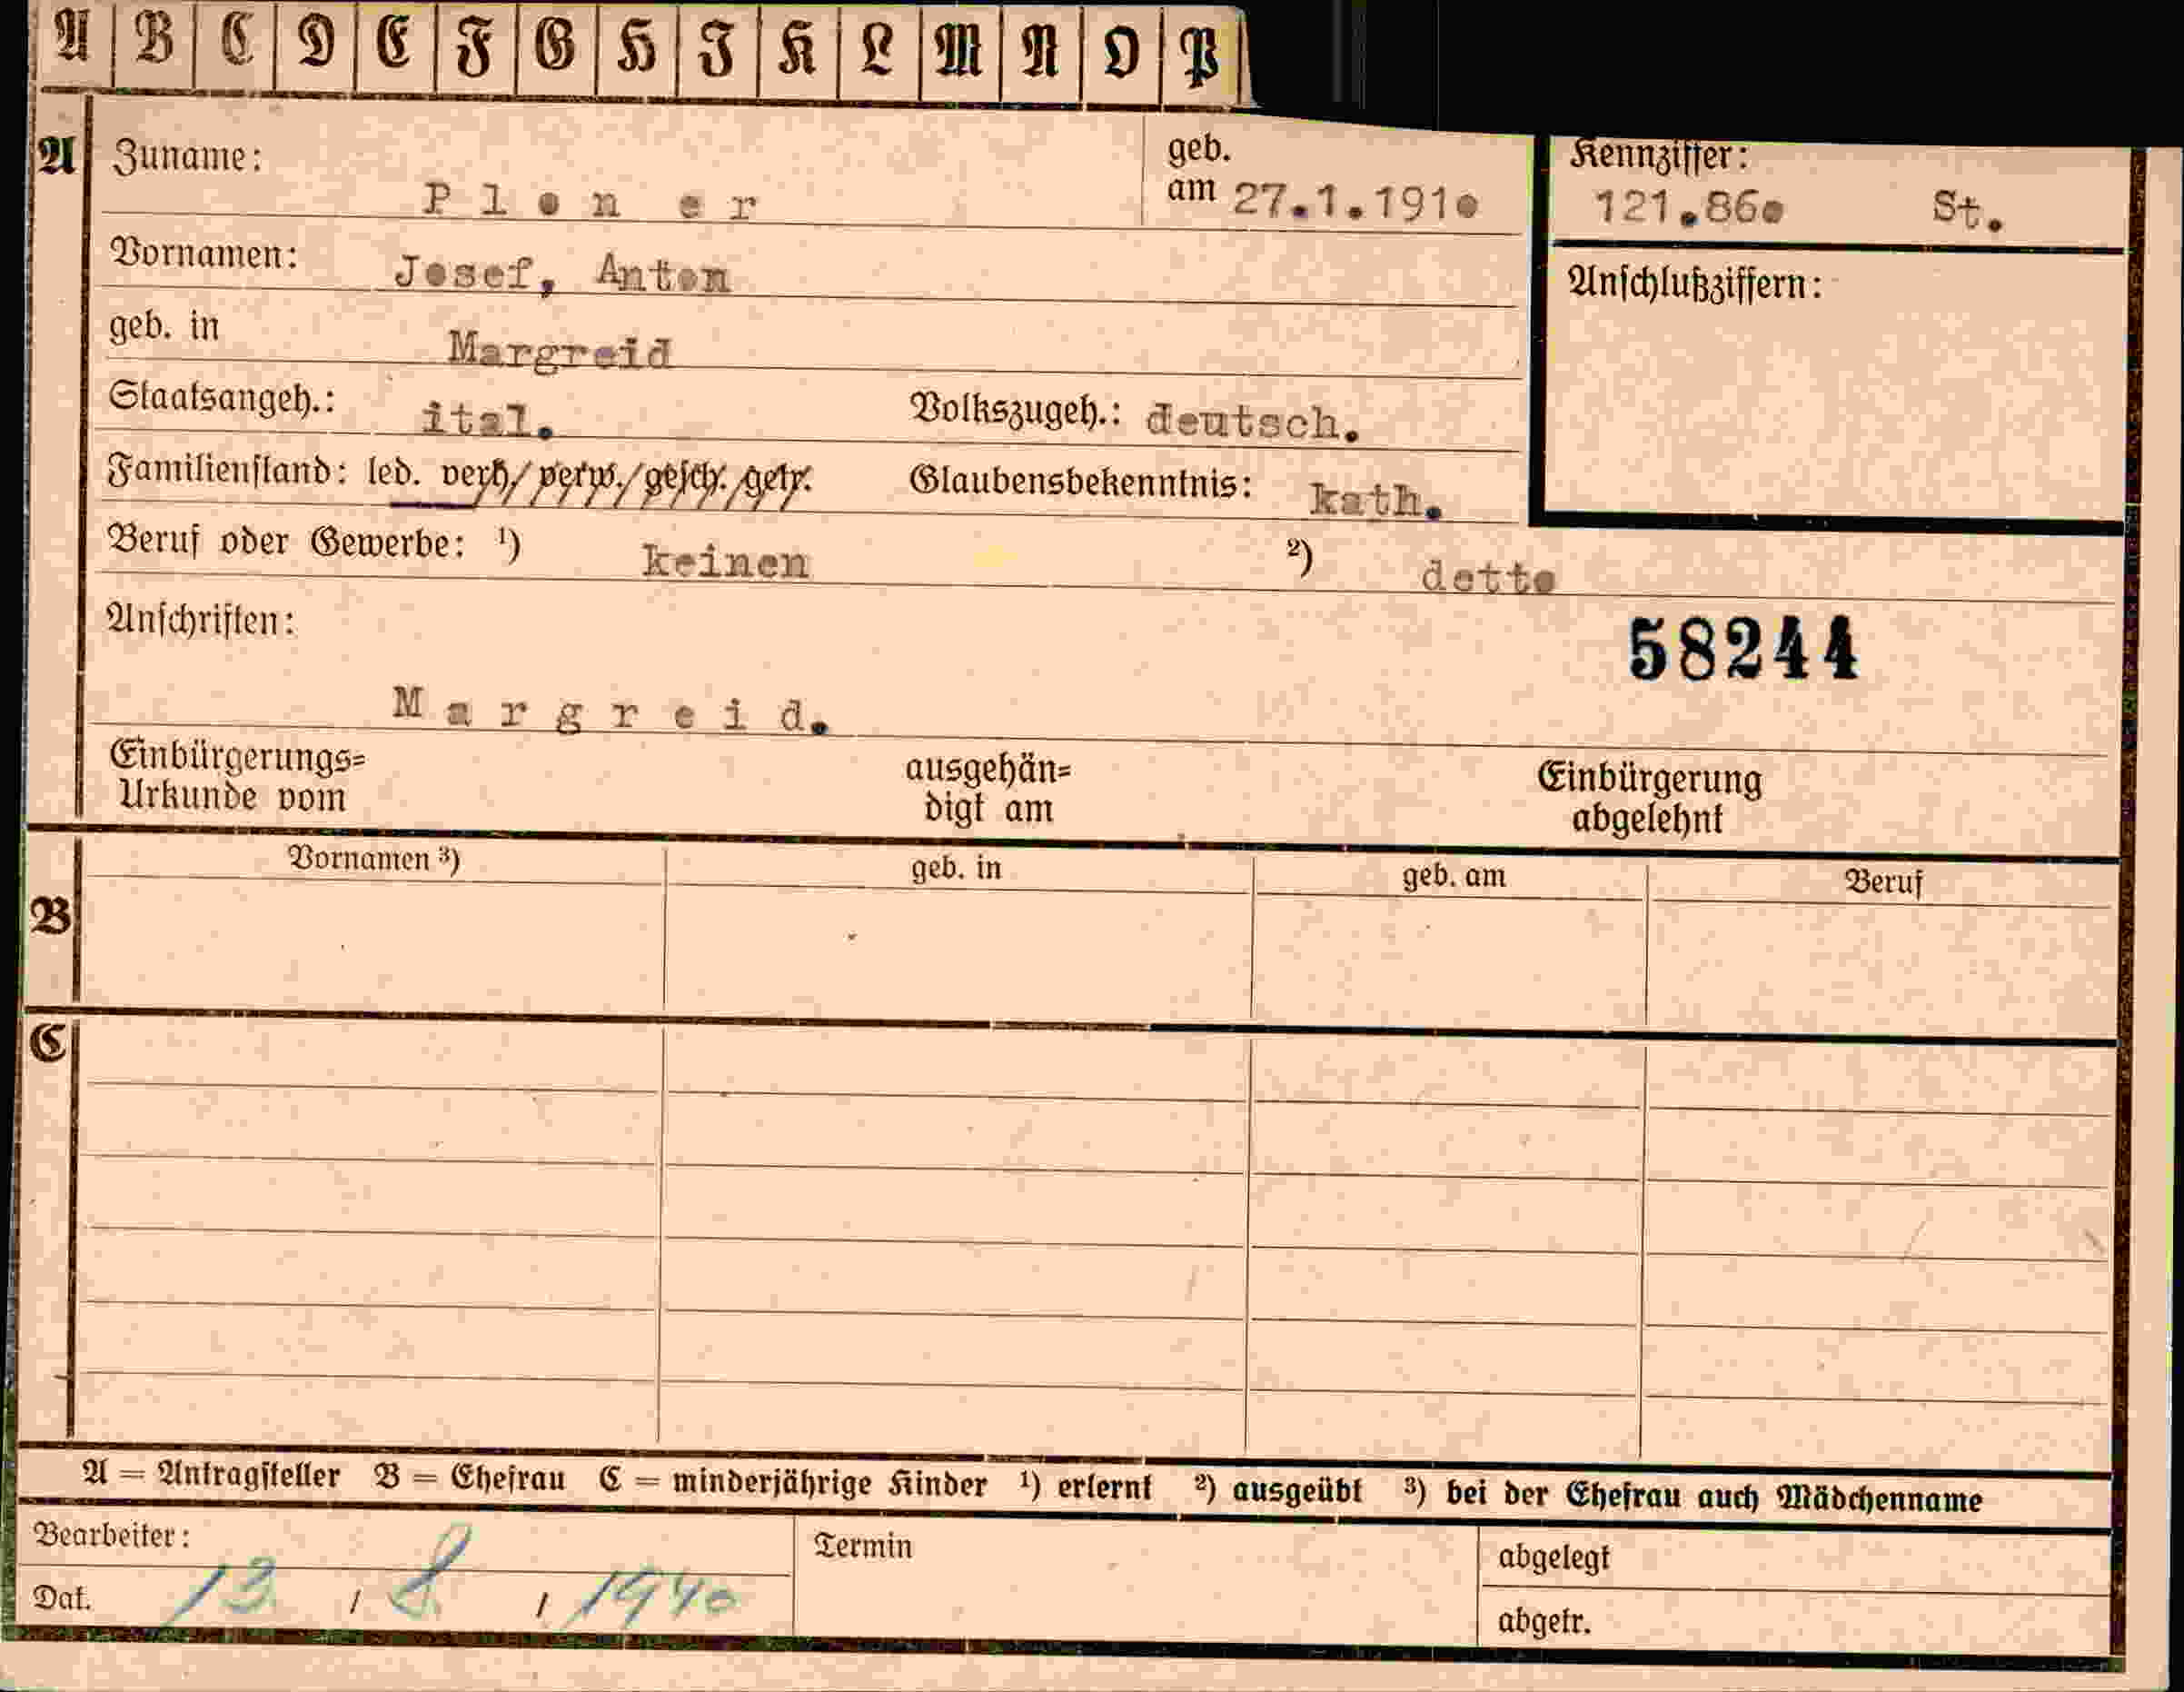 A B C D E F G H I K L M N O P
A
Zuname: Ploner
geb. am 27.1.1910
Kennziffer: 121.860 St.
Vornamen: Josef, Anton
Anschlußziffern:
geb. in Margreid
Staatsangeh.: ital. Volkszugeh.: deutsch.
Familienstand: led. verh./verw./gesch./getr. Glaubensbekenntnis: kath.
Beruf oder Gewerbe: ¹) keinen ²) detto
Anschriften:
58244
Margreid.
Einbürgerungs= ausgehän= Einbürgerung
Urkunde vom digt am abgelehnt
B
Vornamen ³) geb. in geb. am Beruf
C
A = Antragsteller B = Ehefrau C = minderjährige Kinder ¹) erlernt ²) ausgeübt ³) bei der Ehefrau auch Mädchenname
Bearbeiter: Termin abgelegt
Dat. 13 / 8 / 1940 abgetr.